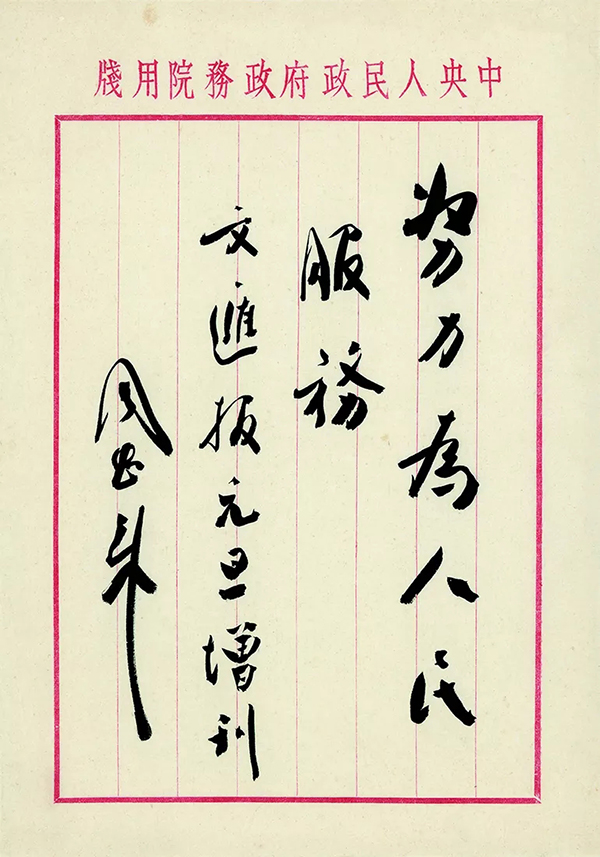 中央人民政府政務院用牋
努力為人民
服務
文滙报元旦增刊
周恩来